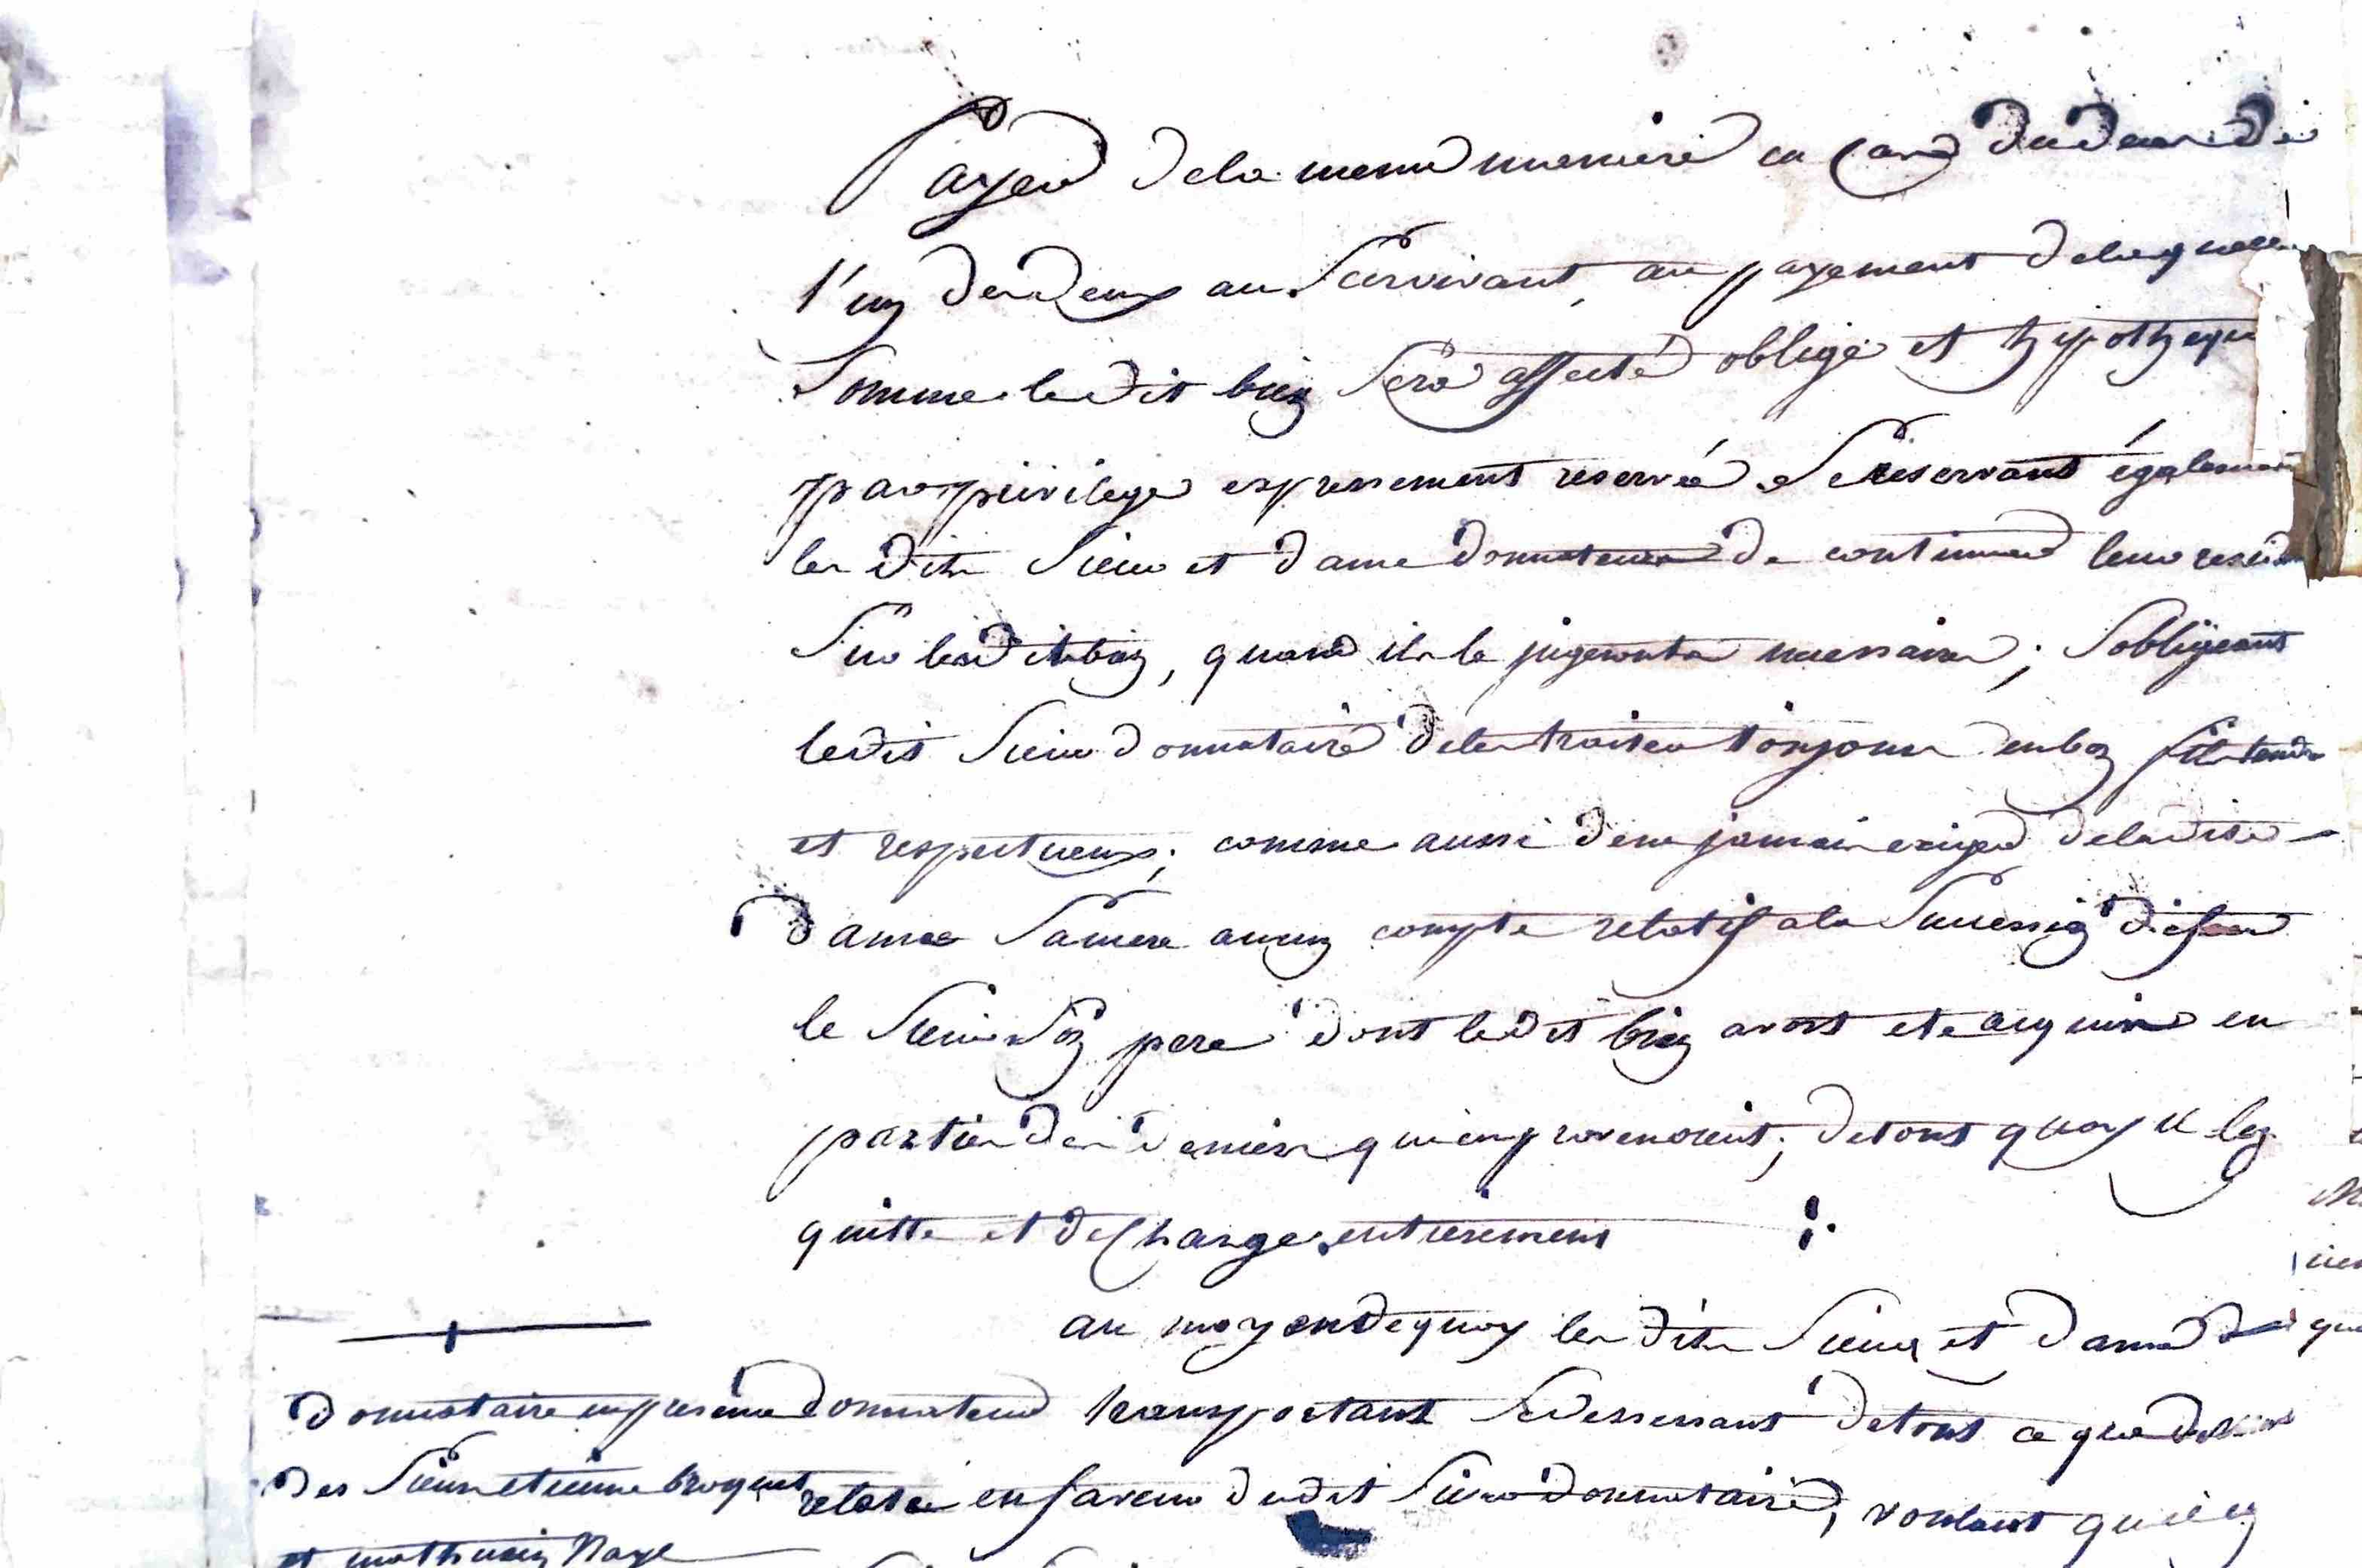 Payer de la meme maniere en cas du deces de
l'un des deux au Survivant, au payement de laquelle
Somme ledit bien Sera affecté obligé et hypothequé
par privilege expressement reservé. Se reservant également
les dits Sieur et dame donnateurs de continuer leur residen
Sur ledit bien, quand ils le jugeront necessaire; S'obligeant
ledit Sieur donnataire de les traiter toujours en bon fils tendre
et respectueux; comme aussi de ne jamais exiger de ladite
dame Sa mere aucun compte relatif a la Succession de feu
le Sieur Son pere dont ledit bien avoit ete acquis en
partie des deniers qui en provenoient; de tout quoy il les
quitte et decharge entierement
au moyen de quoy les dits Sieur et dame
donnateurs transportant Se dessessant de tout ce que dessus
relaté en faveur dudit Sieur donnataire, voulant qu'il en
donnataire en presence
des Sieurs etienne broquet
et mathurin Naye